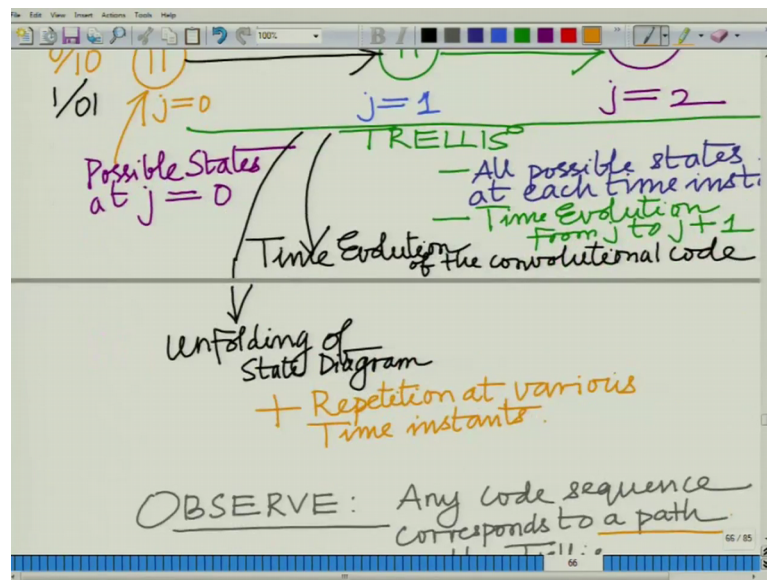 File Edit View Insert Actions Tools Help
100%
B I
0/10 11 11
1/01 j=0 j=1 j=2
TRELLIS
Possible States
at j=0
— All possible states
at each time inst
— Time Evolution
From j to j+1
Time Evolution
of the convolutional code
Unfolding of
State Diagram
+ Repetition at various
Time instants.
OBSERVE: Any code sequence
corresponds to a path
66 / 85
66